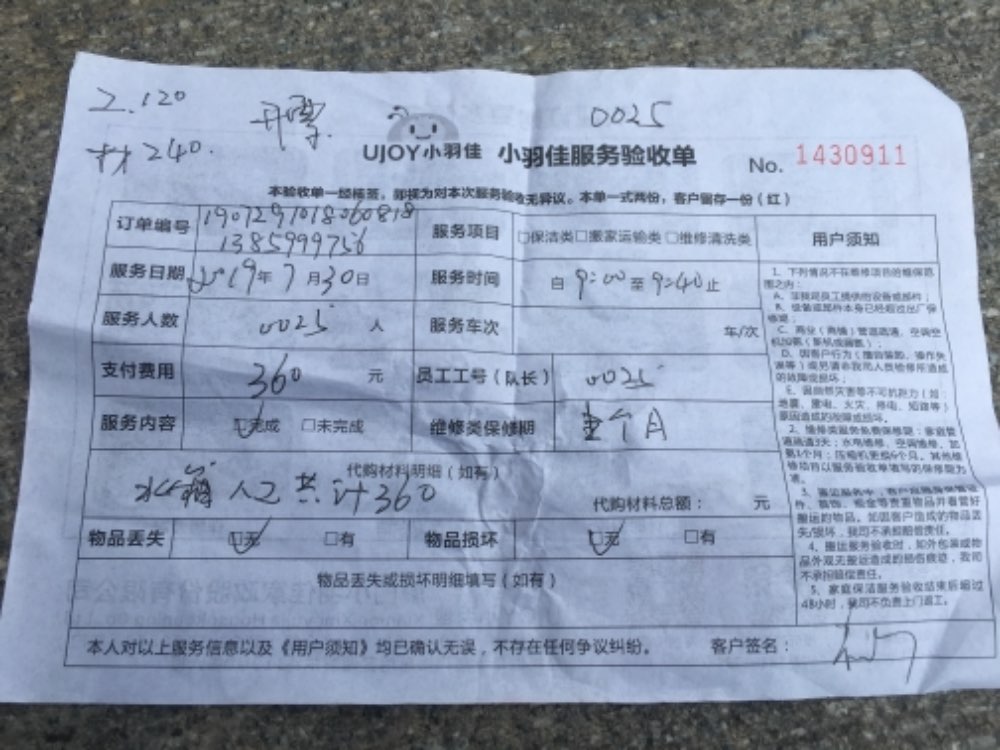 工.120 开票 0025
材240.
UJOY小羽佳 小羽佳服务验收单 No. 1430911
本验收单一经核签，即视为对本次服务验收无异议。本单一式两份，客户留存一份（红）
订单编号 1907291018060818
1385999756
服务项目 □保洁类□搬家运输类□维修清洗类
用户须知
服务日期 2019年7月30日 服务时间 自9:00至9:40止
服务人数 0025 人 服务车次 车/次
支付费用 360 元 员工工号（队长） 0025
服务内容 ☑完成 □未完成 维修类保修期 壹个月
代购材料明细（如有）
水箱人工共计360
代购材料总额： 元
物品丢失 ☑无 □有 物品损坏 ☑无 □有
物品丢失或损坏明细填写（如有）
1、下列情况不在维修项目的维保范
围之内：
A、非我司员工提供的设备或部件；
B、设备或部件本身已经超过出厂保
修期；
C、商业（商铺）管道疏通、空调空
D、因客户行为（擅自装卸、操作失
误等）或另请非我司人员检修所造成
的故障或损坏；
E、因自然灾害等不可抗力（如：
地震、雷电、火灾、停电、短路等）
原因造成的故障或损坏。
2、维修类服务免费保修期：家庭管
道疏通3天；水电维修、空调维修、加
氨1个月；压缩机更换6个月。其他维
修项目以服务验收单填写的保修期为
准。
件、首饰、现金等贵重物品并看管好
搬运的物品。如因客户造成的物品丢
失/损坏，我司不承担赔偿责任。
4、搬运服务验收时，如外包装或物
品外观无搬运造成的损伤痕迹，我司
不承担赔偿责任。
5、家庭保洁服务验收结束后超过
48小时，我司不负责上门返工。
本人对以上服务信息以及《用户须知》均已确认无误，不存在任何争议纠纷。 客户签名：